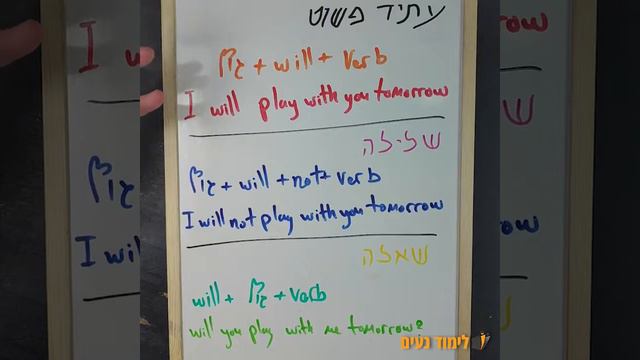 עתיד פשוט
גוף + will + verb
I will play with you tomorrow
שלילה
גוף + will + not + verb
I will not play with you tomorrow
שאלה
will + גוף + verb
will you play with me tomorrow?
לימוד נעים